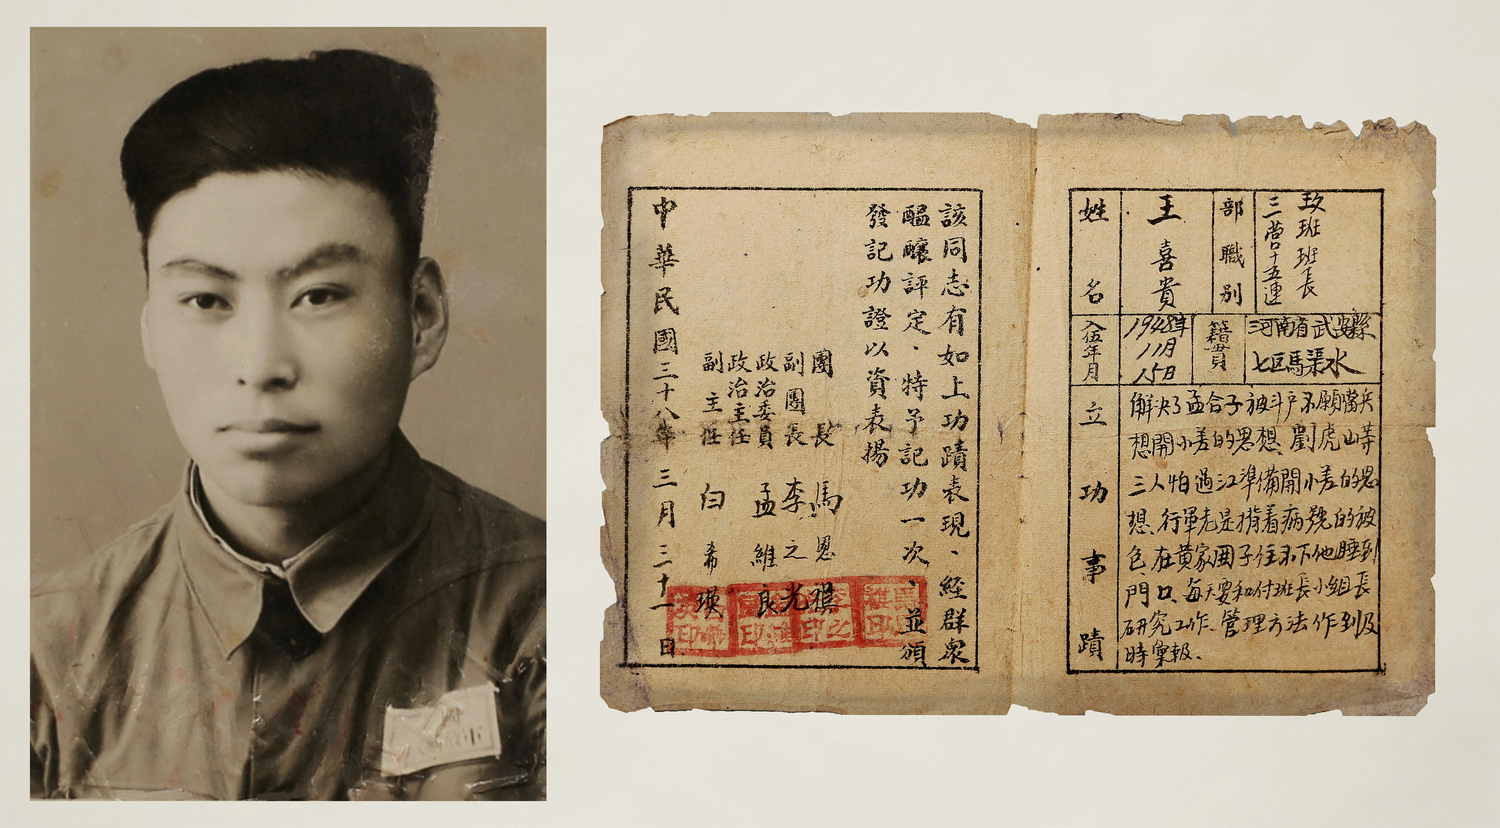 姓名
王喜貴
部職別
三营十五連
玖班班長
入伍年月
1948年
11月
15日
籍貫
河南省武安縣
七区馬渠水
立功事蹟
解决了孟合子被斗户不願當兵
想開小差的思想、劉虎山等
三人怕過江準備開小差的思
想、行軍老是揹着病號的被
包、在黄家圍子住不下他睡到
門口、每天要和付班長小組長
研究工作、管理方法作到及
時彙報.
該同志有如上功蹟表現、經群衆
醞釀評定、特予記功一次、並頒
發記功證以資表揚
團長 馬恩祺
副團長 李之光
政治委員 孟維良
政治主任
副主任 白希瑛
中華民國三十八年三月三十一日